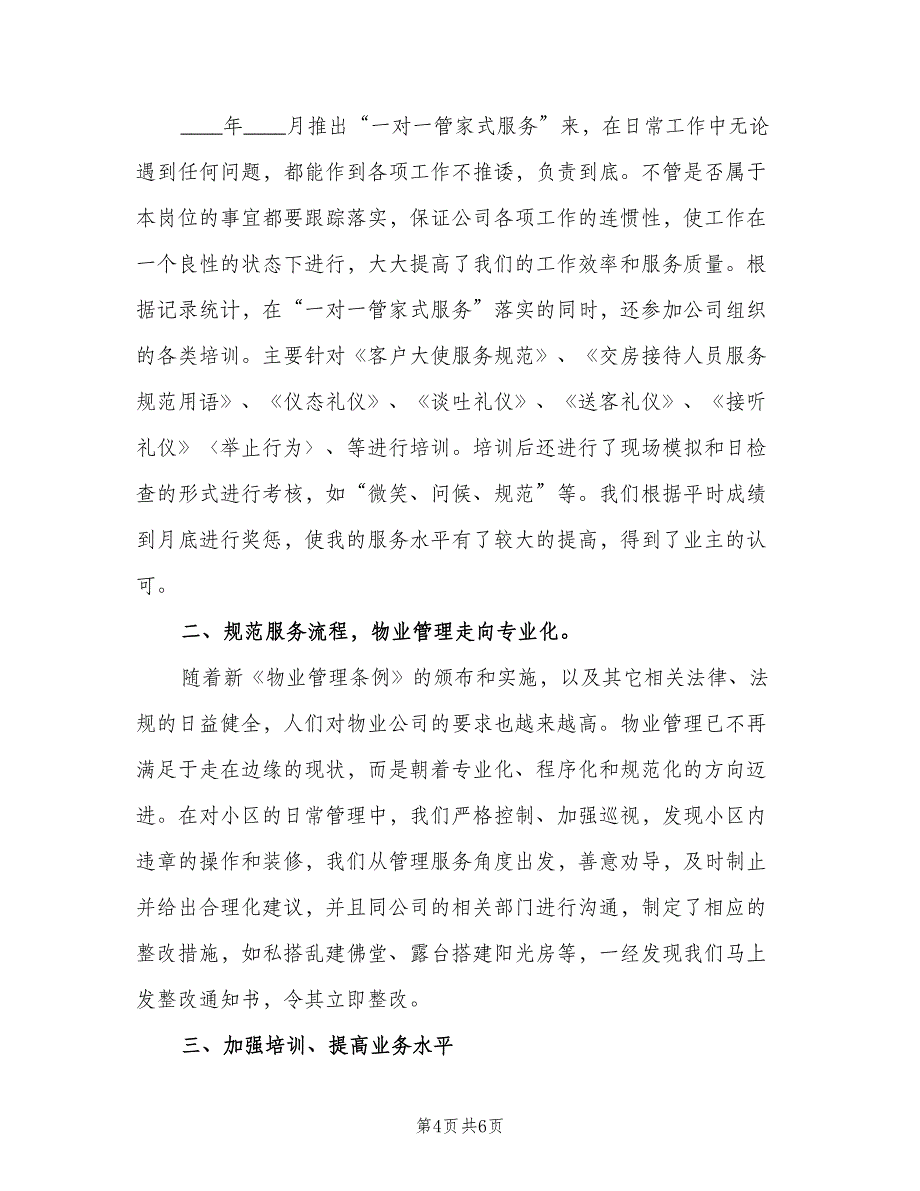 ____年____月推出“一对一管家式服务”来，在日常工作中无论
遇到任何问题，都能作到各项工作不推诿，负责到底。不管是否属于
本岗位的事宜都要跟踪落实，保证公司各项工作的连惯性，使工作在
一个良性的状态下进行，大大提高了我们的工作效率和服务质量。根
据记录统计，在“一对一管家式服务”落实的同时，还参加公司组织
的各类培训。主要针对《客户大使服务规范》、《交房接待人员服务
规范用语》、《仪态礼仪》、《谈吐礼仪》、《送客礼仪》、《接听
礼仪》〈举止行为〉、等进行培训。培训后还进行了现场模拟和日检
查的形式进行考核，如“微笑、问候、规范”等。我们根据平时成绩
到月底进行奖惩，使我的服务水平有了较大的提高，得到了业主的认
可。
二、规范服务流程，物业管理走向专业化。
随着新《物业管理条例》的颁布和实施，以及其它相关法律、法
规的日益健全，人们对物业公司的要求也越来越高。物业管理已不再
满足于走在边缘的现状，而是朝着专业化、程序化和规范化的方向迈
进。在对小区的日常管理中，我们严格控制、加强巡视，发现小区内
违章的操作和装修，我们从管理服务角度出发，善意劝导，及时制止
并给出合理化建议，并且同公司的相关部门进行沟通，制定了相应的
整改措施，如私搭乱建佛堂、露台搭建阳光房等，一经发现我们马上
发整改通知书，令其立即整改。
三、加强培训、提高业务水平
第4页 共6页